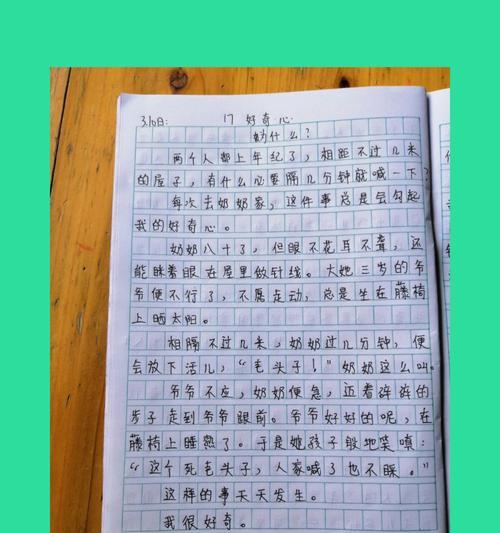 3.10日: 17 好奇心.
什么?
两个人都上年纪了，相距不过几米
的屋子，有什么必要隔几分钟就喊一下?
每次去奶奶家，这件事总是会勾起
我的好奇心。
奶奶八十了，但眼不花耳不聋，还
能眯着眼在屋里做针线。大她三岁的爷
爷便不行了，不愿走动，总是坐在藤椅
上晒太阳。
相隔不过几米，奶奶过几分钟，便
会放下活儿，“毛头子！”奶奶这么叫。
爷爷不应，奶奶便急，迈着碎碎的
步子走到爷爷眼前。爷爷好好的呢，在
藤椅上睡熟了。于是她孩子般地笑嗔：
“这个死毛头子，人家喊了也不睬。”
这样的事天天发生。
我很好奇。